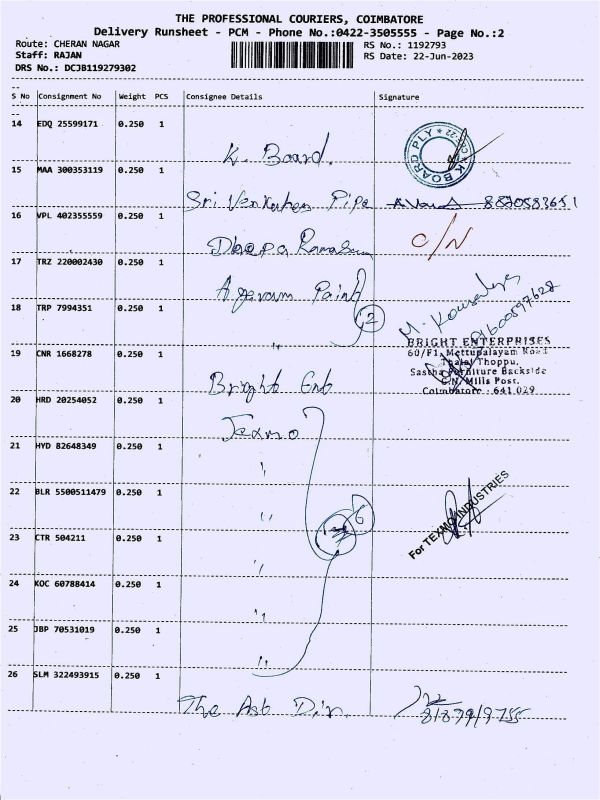 THE PROFESSIONAL COURIERS, COIMBATORE
Delivery Runsheet - PCM - Phone No.:0422-3505555 - Page No.:2
Route: CHERAN NAGAR RS No.: 1192793
Staff: RAJAN RS Date: 22-Jun-2023
DRS No.: DCJB119279302
S No Consignment No Weight PCS Consignee Details Signature
14 EDQ 25599171 0.250 1
K. Board.
K BOARD PLY
15 MAA 300353119 0.250 1
Sri Venkates Pipe
16 VPL 402355559 0.250 1
C/N
17 TRZ 220002430 0.250 1
Paint
18 TRP 7994351 0.250 1
2
"
M. Kousalya
BRIGHT ENTERPRISES
60/F1, Mettupalayam Road
Thalai Thoppu,
Sastha Furniture Backside
G.N. Mills Post,
Coimbatore - 641 029
19 CNR 1668278 0.250 1
Bright Ent
20 HRD 20254052 0.250 1
Texmo
21 HYD 82648349 0.250 1
"
22 BLR 5500511479 0.250 1
"
6
For TEXMO INDUSTRIES
23 CTR 504211 0.250 1
"
24 KOC 60788414 0.250 1
"
25 JBP 70531019 0.250 1
"
26 SLM 322493915 0.250 1
The Ast Dir.